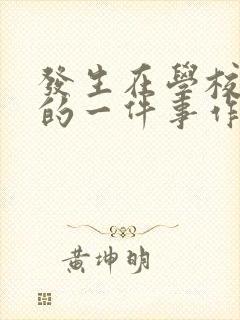 發生在學校
的一件事作
黃坤明